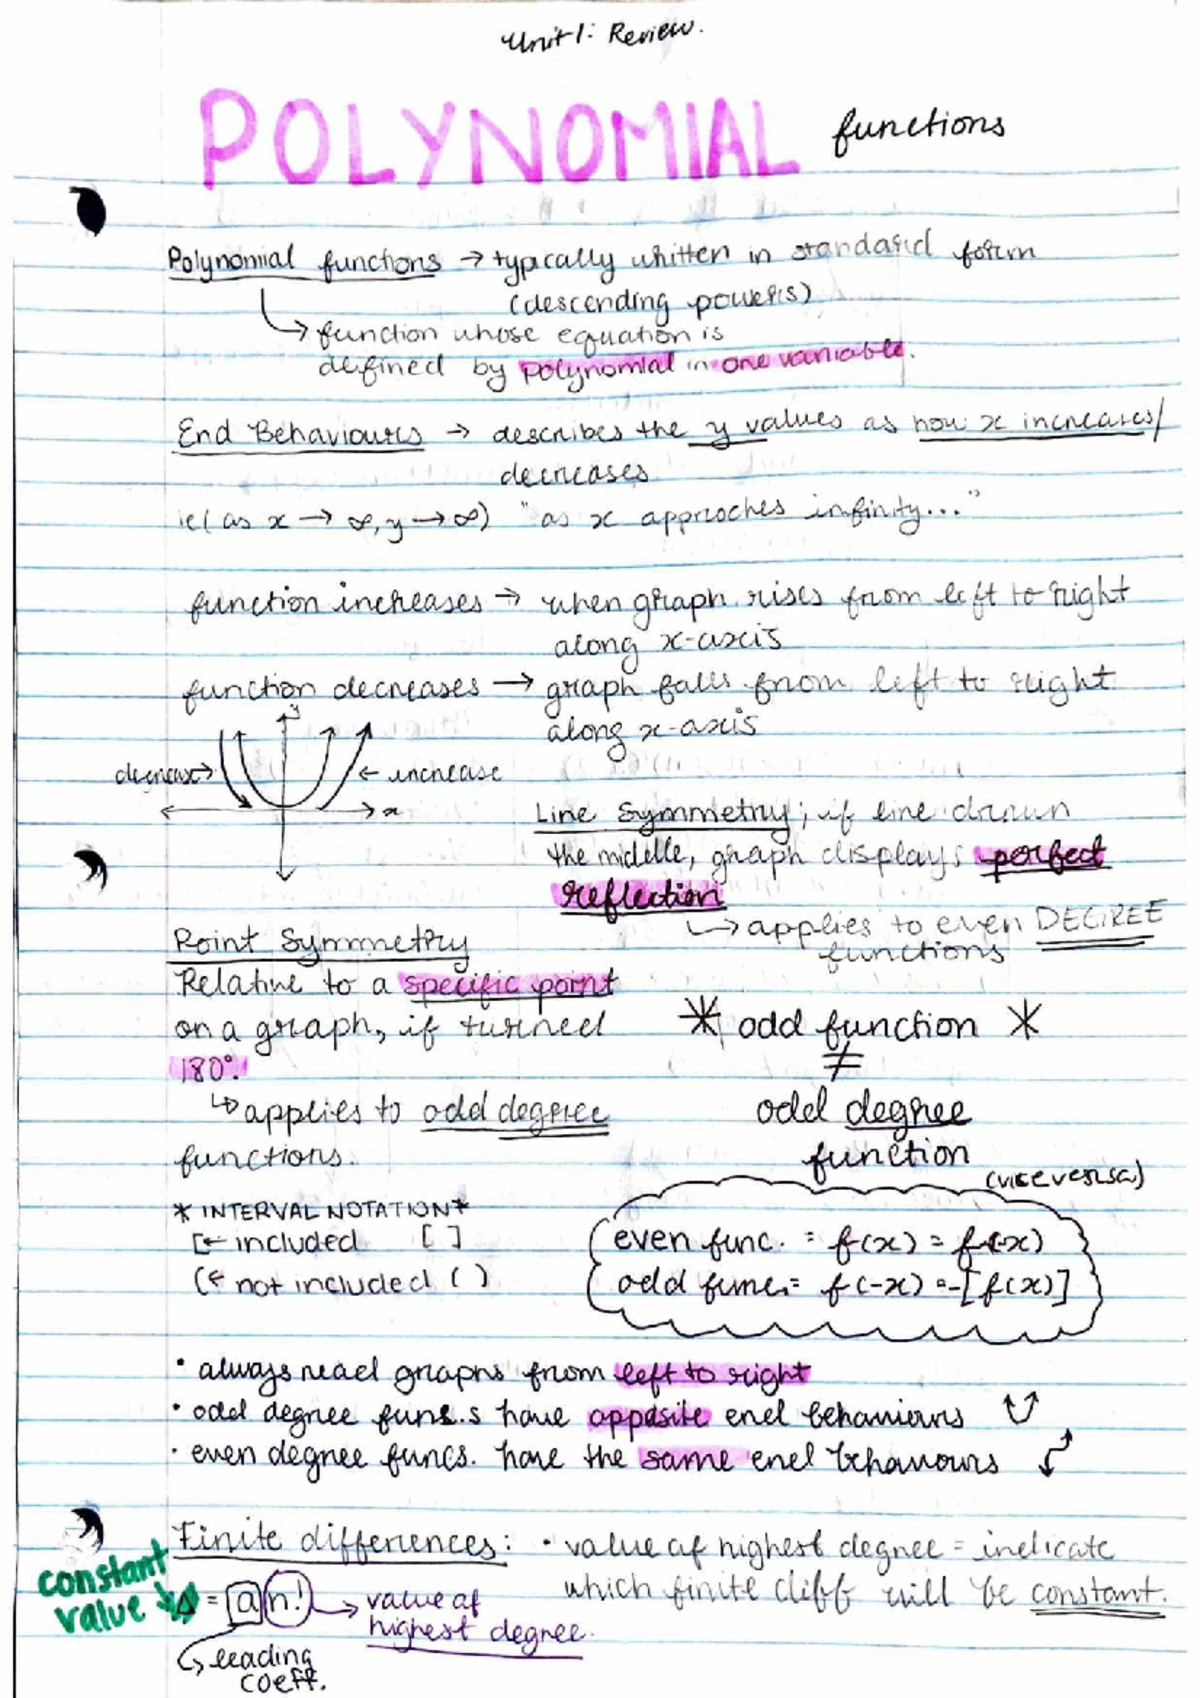 Unit 1: Review.
POLYNOMIAL functions
Polynomial functions → typically written in standard form
(descending powers)
↳ function whose equation is
defined by polynomial in one variable.
End Behaviours → describes the y values as how x increases/
decreases
ie (as x → ∞, y → ∞) "as x approches infinity..."
function increases → when graph rises from left to right
along x-axis
function decreases → graph falls from left to right
along x-axis
y
decrease →
← increase
x
Line Symmetry; if line drawn
the middle, graph displays perfect
reflection
↳ applies to even DEGREE
functions
Point Symmetry
Relative to a specific point
on a graph, if turned
180°.
↳ applies to odd degree
functions.
* odd function *
≠
odd degree
function
(vice versa)
* INTERVAL NOTATION *
[ ← included [ ]
( ← not included ( )
even func. = f(x) = f(-x)
odd func. = f(-x) = -[f(x)]
· always read graphs from left to right
· odd degree funcs have opposite end behaviours
· even degree funcs. have the same end behaviours
Finite differences: · value of highest degree = indicate
which finite diff will be constant.
constant
value
Δ = a n! → value of
highest degree.
↳ leading
coeff.